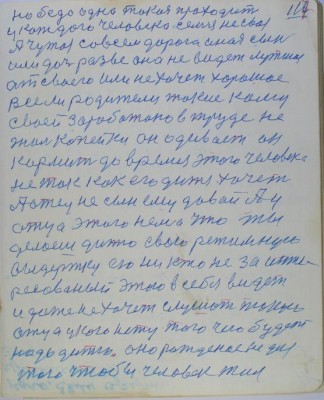 118
но бедо одна такая проходит
у каждого человека семя не своя
А чужая совсем дорога иная сын
или доч разве она не видет мутных
от своего или не хочет хорошое
Все ли родители такие кому
своей заработано в труде не
жал копейки он одевает он
кормит до время этого человека
не так как его дитя хочет
А отец не сын ему давай А у
отца этого нема что ты
делаеш дитю свою
выдержку его никто не заинте
ресованый этого в себе видет
и даже не хочет слушат такого
отца у кого нету того что будет
надо дитю. оно рожденое не для
того чтобы человек жил